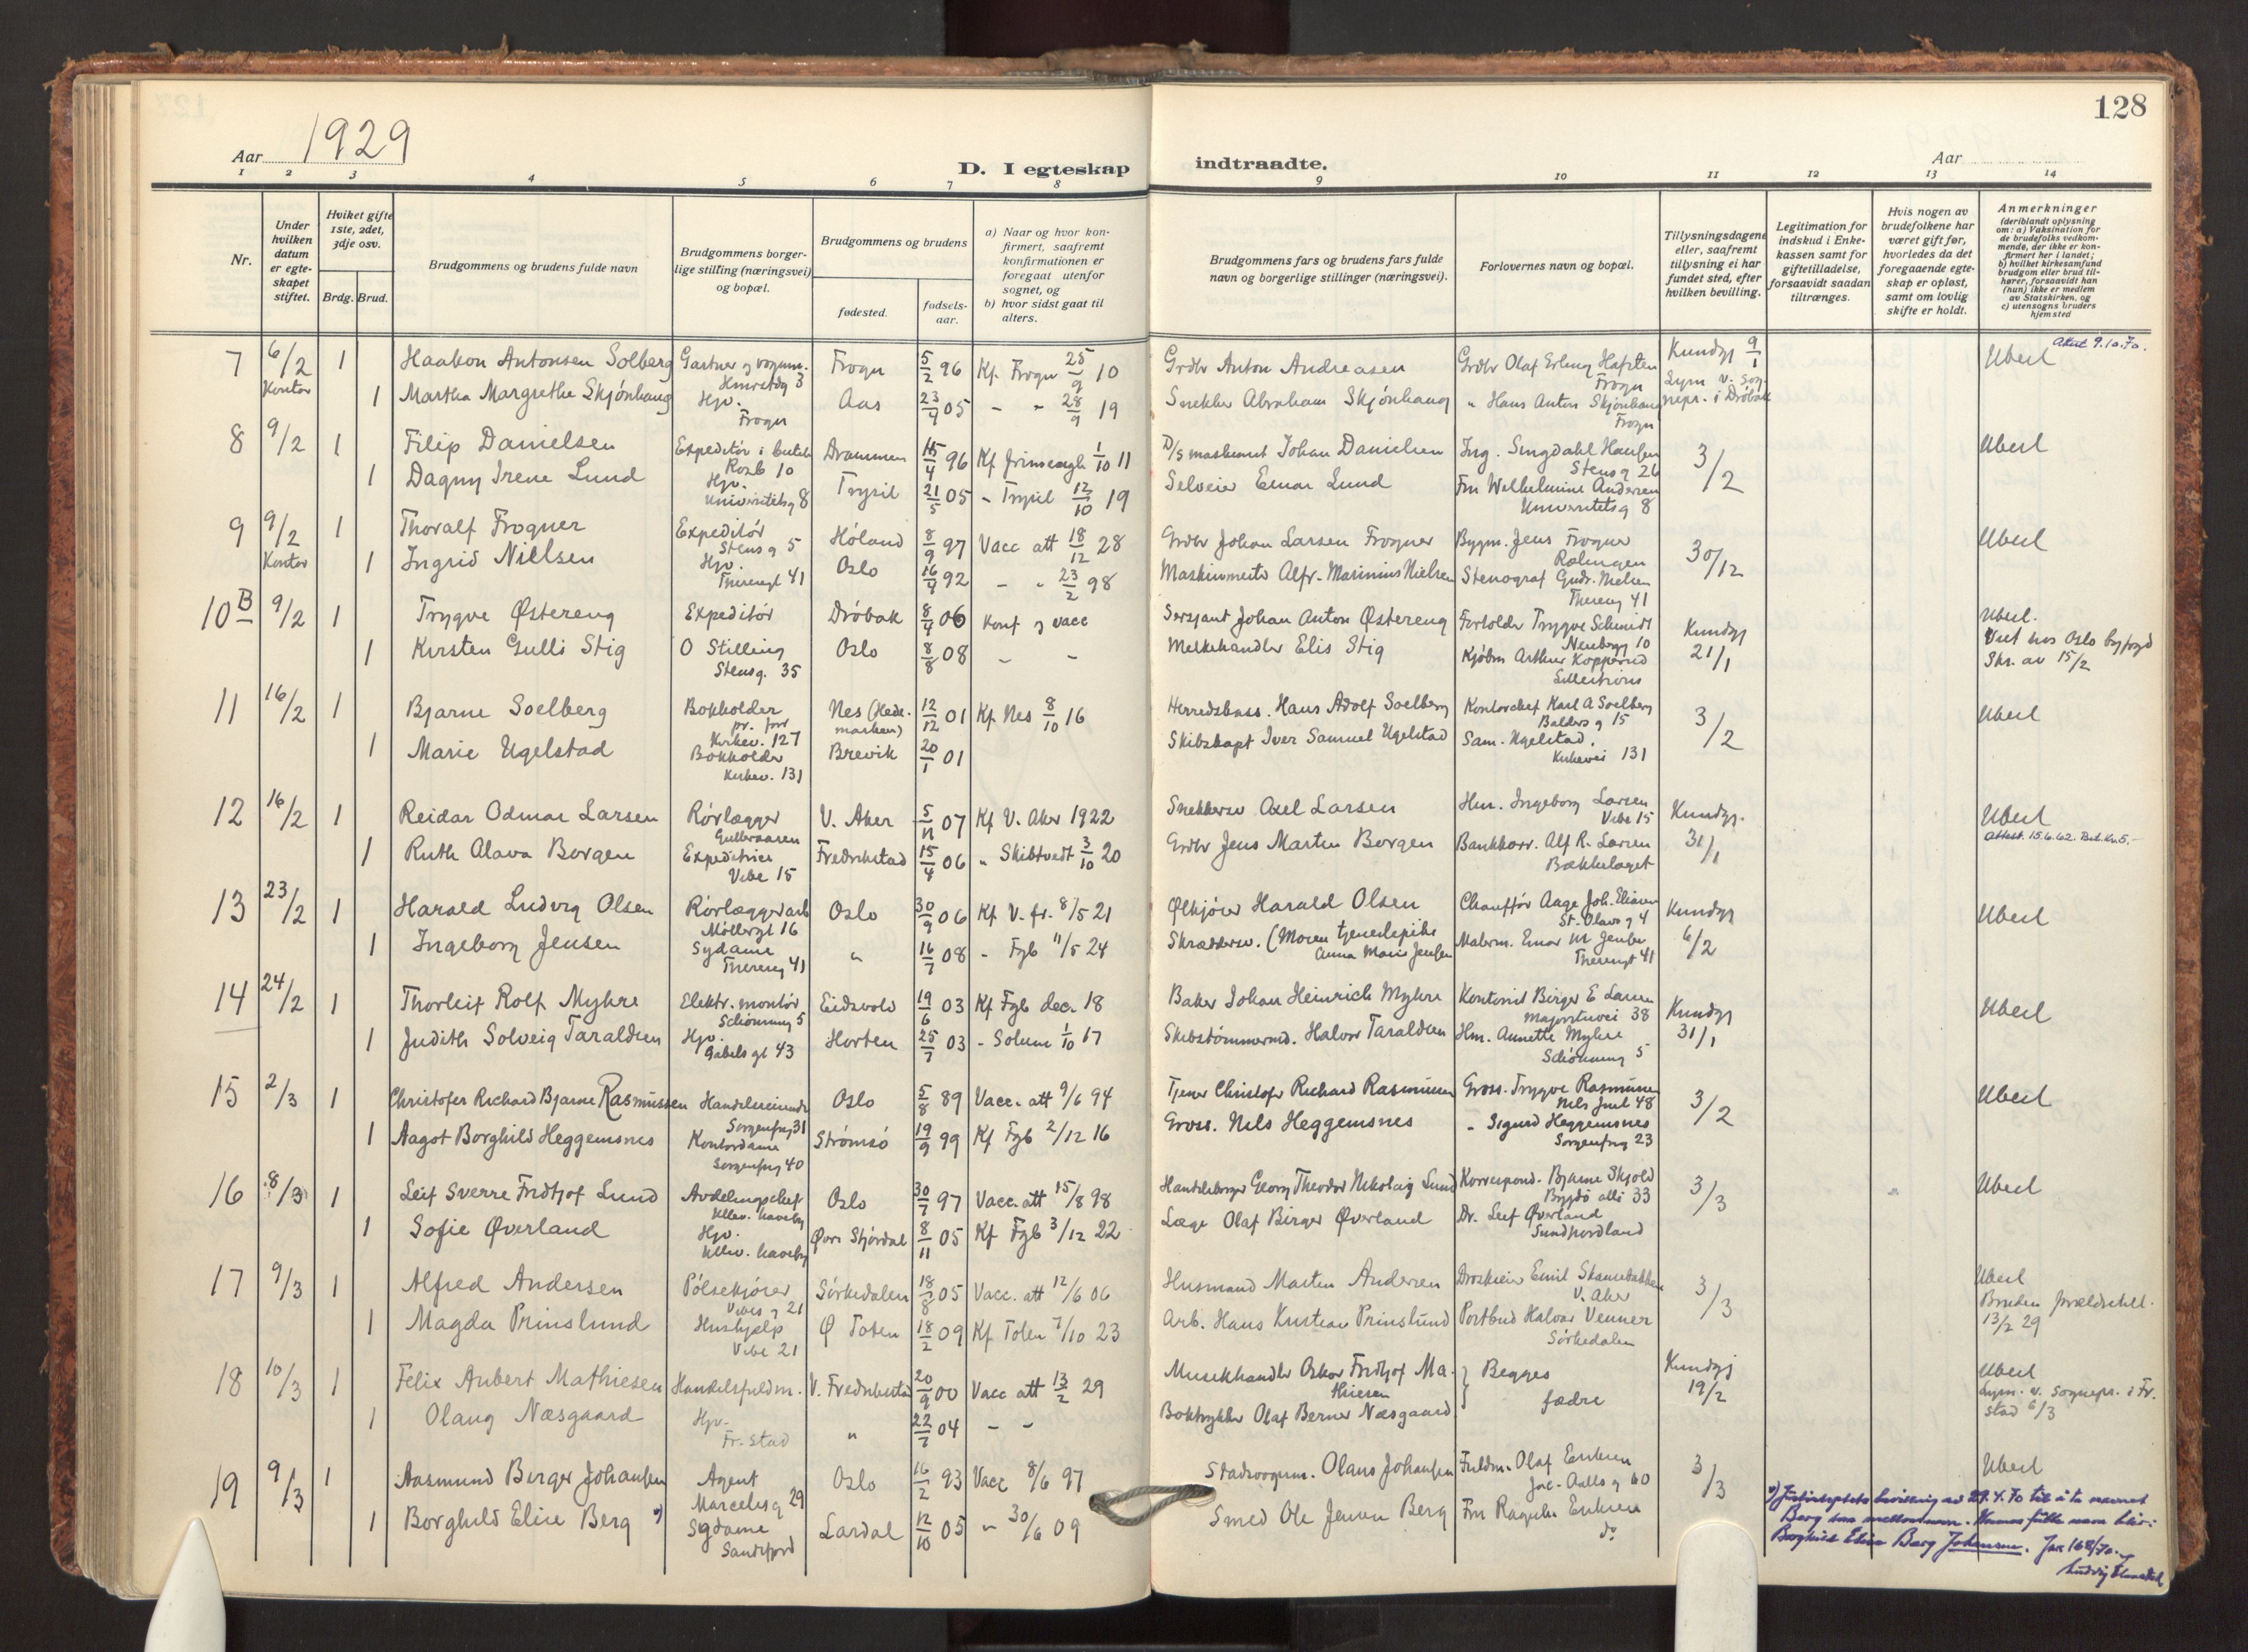 128
Aar 1929
D. I egteskap indtraadte.
Aar
1 2 3 4 5 6 7 8 9 10 11 12 13 14
Nr.
Under hvilken datum er egteskapet stiftet.
Hviket gifte 1ste, 2det, 3dje osv.
Brdg. Brud.
Brudgommens og brudens fulde navn
Brudgommens borgerlige stilling (næringsvei) og bopæl.
Brudgommens og brudens
fødested.
fødselsaar.
a) Naar og hvor konfirmert, saafremt konfirmationen er foregaat utenfor sognet, og
b) hvor sidst gaat til alters.
Brudgommens fars og brudens fars fulde navn og borgerlige stillinger (næringsvei).
Forlovernes navn og bopæl.
Tillysningsdagene eller, saafremt tillysning ei har fundet sted, efter hvilken bevilling.
Legitimation for indskud i Enkekassen samt for giftetilladelse, forsaavidt saadan tiltrænges.
Hvis nogen av brudefolkene har været gift før, hvorledes da det foregaaende egteskap er opløst, samt om lovlig skifte er holdt.
Anmerkninger
(deriblandt oplysning om: a) Vaksination for de brudefolks vedkommende, der ikke er konfirmert her i landet; b) hvilket kirkesamfund brudgom eller brud tilhører, forsaavidt han (hun) ikke er medlem av Statskirken, og c) utensogns bruders hjemsted
7 6/2 1 Haakon Antonsen Solberg Gartner Frogn 5/2 96 Kf Frogn 25/9 10 Grdbr Anton Andreasen Grdbr Olaf Erling Frogn Kundgj 9/1 Ubesl
Kontor 1 Martha Margrethe Skjønhaug Hjv. Frogn Aas 23/9 05 - " 28/9 19 Snekker Abraham Skjønhaug " Hans Anton Skjønhaug Frogn
8 9/2 1 Filip Danielsen Expeditør i butik 10 Drammen 15/4 96 Kf 1/10 11 Johan Danielsen Ing. Hansen Stensg 26 3/2 Ubesl
1 Dagny Irene Lund Hjv. Universitetsg 8 Trysil 21/5 05 - Trysil 12/10 19 Selveier Einar Lund Fru Wilhelmine Andersen Universitetsg 8
9 9/2 1 Thoralf Frogner Expeditør Stensg 5 Høland 8/9 97 Vacc att 18/12 28 Grdbr Johan Larsen Frogner Bygm. Jens Frogner Rælingen 30/12 Ubesl
Kontor 1 Ingrid Nielsen Hjv. Theresgt 41 Oslo 16/4 92 - " 23/2 98 Maskinmester Alfr. Marinius Nielsen Stenograf Gudr. Nielsen Theresg 41
10 B 9/2 1 Trygve Østereng Expeditør Drøbak 8/4 06 Konf og vacc Sersjant Johan Anton Østereng Forvolder Trygve Schmidt 10 Kundgj 21/1 Ubesl.
1 Kirsten Gulli Stig O Stilling Stensg. 35 Oslo 8/8 08 - - Melkehandler Elis Stig Kjøbm Arthur Kopperud Skr. av 15/2
11 16/2 1 Bjarne Soelberg Bokholder Kirkev. 127 Nes (Hedemarken) 12/12 01 Kf Nes 8/10 16 Herredskass. Hans Adolf Soelberg Kontorchef Karl A Soelberg Baldersg 15 3/2 Ubesl
1 Marie Ugelstad Bokholder Kirkev. 131 Brevik 20/1 01 Skibskapt Iver Samuel Ugelstad Sam. Ugelstad. Kirkevei 131
12 16/2 1 Reidar Odmar Larsen Rørlægger V. Aker 5/11 07 Kf V. Aker 1922 Snekkersv Axel Larsen Hm. Ingeborg Larsen Vibe 15 Kundgj. 31/1 Ubesl
1 Ruth Alava Borgen Expeditrice Vibe 15 Fredrikstad 15/4 06 " Skibtvedt 3/10 20 Grdbr Jens Martin Borgen Bankkorr. Alf R. Larsen Bækkelaget Attest. 15.6.62. Bet. Kr. 5.-
13 23/2 1 Harald Ludvig Olsen Rørlæggerarb Møllergt 16 Oslo 30/9 06 Kf V. fr. 8/5 21 Ølkjører Harald Olsen Chauffør Aage Joh. Eliasen St. Olavsg 4 Kundgj 6/2 Ubesl
1 Ingeborg Jensen Sydame Theresg 41 " 16/7 08 - Fgb 11/5 24 Skræddersv. (Moren tjenestepike Anna Marie Jensen Malerm. Einar M Jensen Theresgt 41
14 24/2 1 Thorleif Rolf Myhre Elektr. montør Schønning 5 Eidsvold 19/6 03 Kf Fgb dec. 18 Baker Johan Heinrich Myhre Kontorist Birger E Larsen Majorstuvei 38 Kundgj 31/1 Ubesl
1 Judith Solveig Taraldsen Hjv. Gabels gt 43 Horten 25/7 03 - Solum 1/10 17 Skibstømmermd. Halvor Taraldsen Hm. Annette Myhre Schønning 5
15 2/3 1 Christofer Richard Bjarne Rasmussen Handelsreisende Sorgenfrig 31 Oslo 5/8 89 Vacc. att 9/6 94 Tjener Christofer Richard Rasmussen Gross. Trygve Rasmussen Nils Juel 48 3/2 Ubesl
1 Aagot Borghild Heggemsnes Kontordame Sorgenfrig 40 Strømsø 19/9 99 Kf Fgb 2/12 16 Gross. Nils Heggemsnes " Sigurd Heggemsnes Sorgenfrig 23
16 8/3 1 Leif Sverre Fridtjof Lund Avdelingschef Ullev. haveby Oslo 30/7 97 Vacc. att 15/8 98 Handelsborger Georg Theodor Nikolaig Lund Korrespond. Bjarne Skjold Bygdø alle 33 3/3 Ubesl
1 Sofie Øverland Hjv. Ullev. haveby Øvre Stjørdal 8/11 05 Kf Fgb 3/12 22 Læge Olaf Birger Øverland Dr. Leif Øverland
17 9/3 1 Alfred Andersen Pølsekjører Vibesg 21 Sørkedalen 18/8 05 Vacc. att 12/6 06 Husmand Martin Andersen Droskeeier Emil V. Aker 3/3 Ubesl
1 Magda Prinslund Hushjelp Vibe 21 Ø Toten 18/2 09 Kf Toten 7/10 23 Arb. Hans Kristian Prinslund Portbud Halvor Venner Sørkedalen Bruden 13/2 29
18 10/3 1 Felix Aubert Mathiesen Handelsfuldm. V. Fredrikstad 20/9 00 Vacc att 13/2 29 Musikhandler Oskar Fridtjof Mathiesen } Begges fædre Kundgj 19/2 Ubesl
1 Olaug Næsgaard Hjv. Fr.stad " 22/7 04 - - Boktrykker Olaf Berner Næsgaard Lysn. v. Sognepr. i Fr.stad 6/3
19 9/3 1 Aasmund Birger Johansen Agent Marcelesg 29 Oslo 16/2 93 Vacc 8/6 97 Stadsvognm. Olaus Johansen Fuldm. Olaf Eriksen Jac. Aallsg 60 3/3 Ubesl
1 Borghild Elise Berg Sydame Sandefjord Lardal 12/10 05 " 30/6 09 Smed Ole Jensen Berg Fru Ragnh. Eriksen do
av 29.4.70 til å ta navnet
Berg som mellomnavn. Hennes fulle navn blir:
Borghild Elise Berg Johansen.